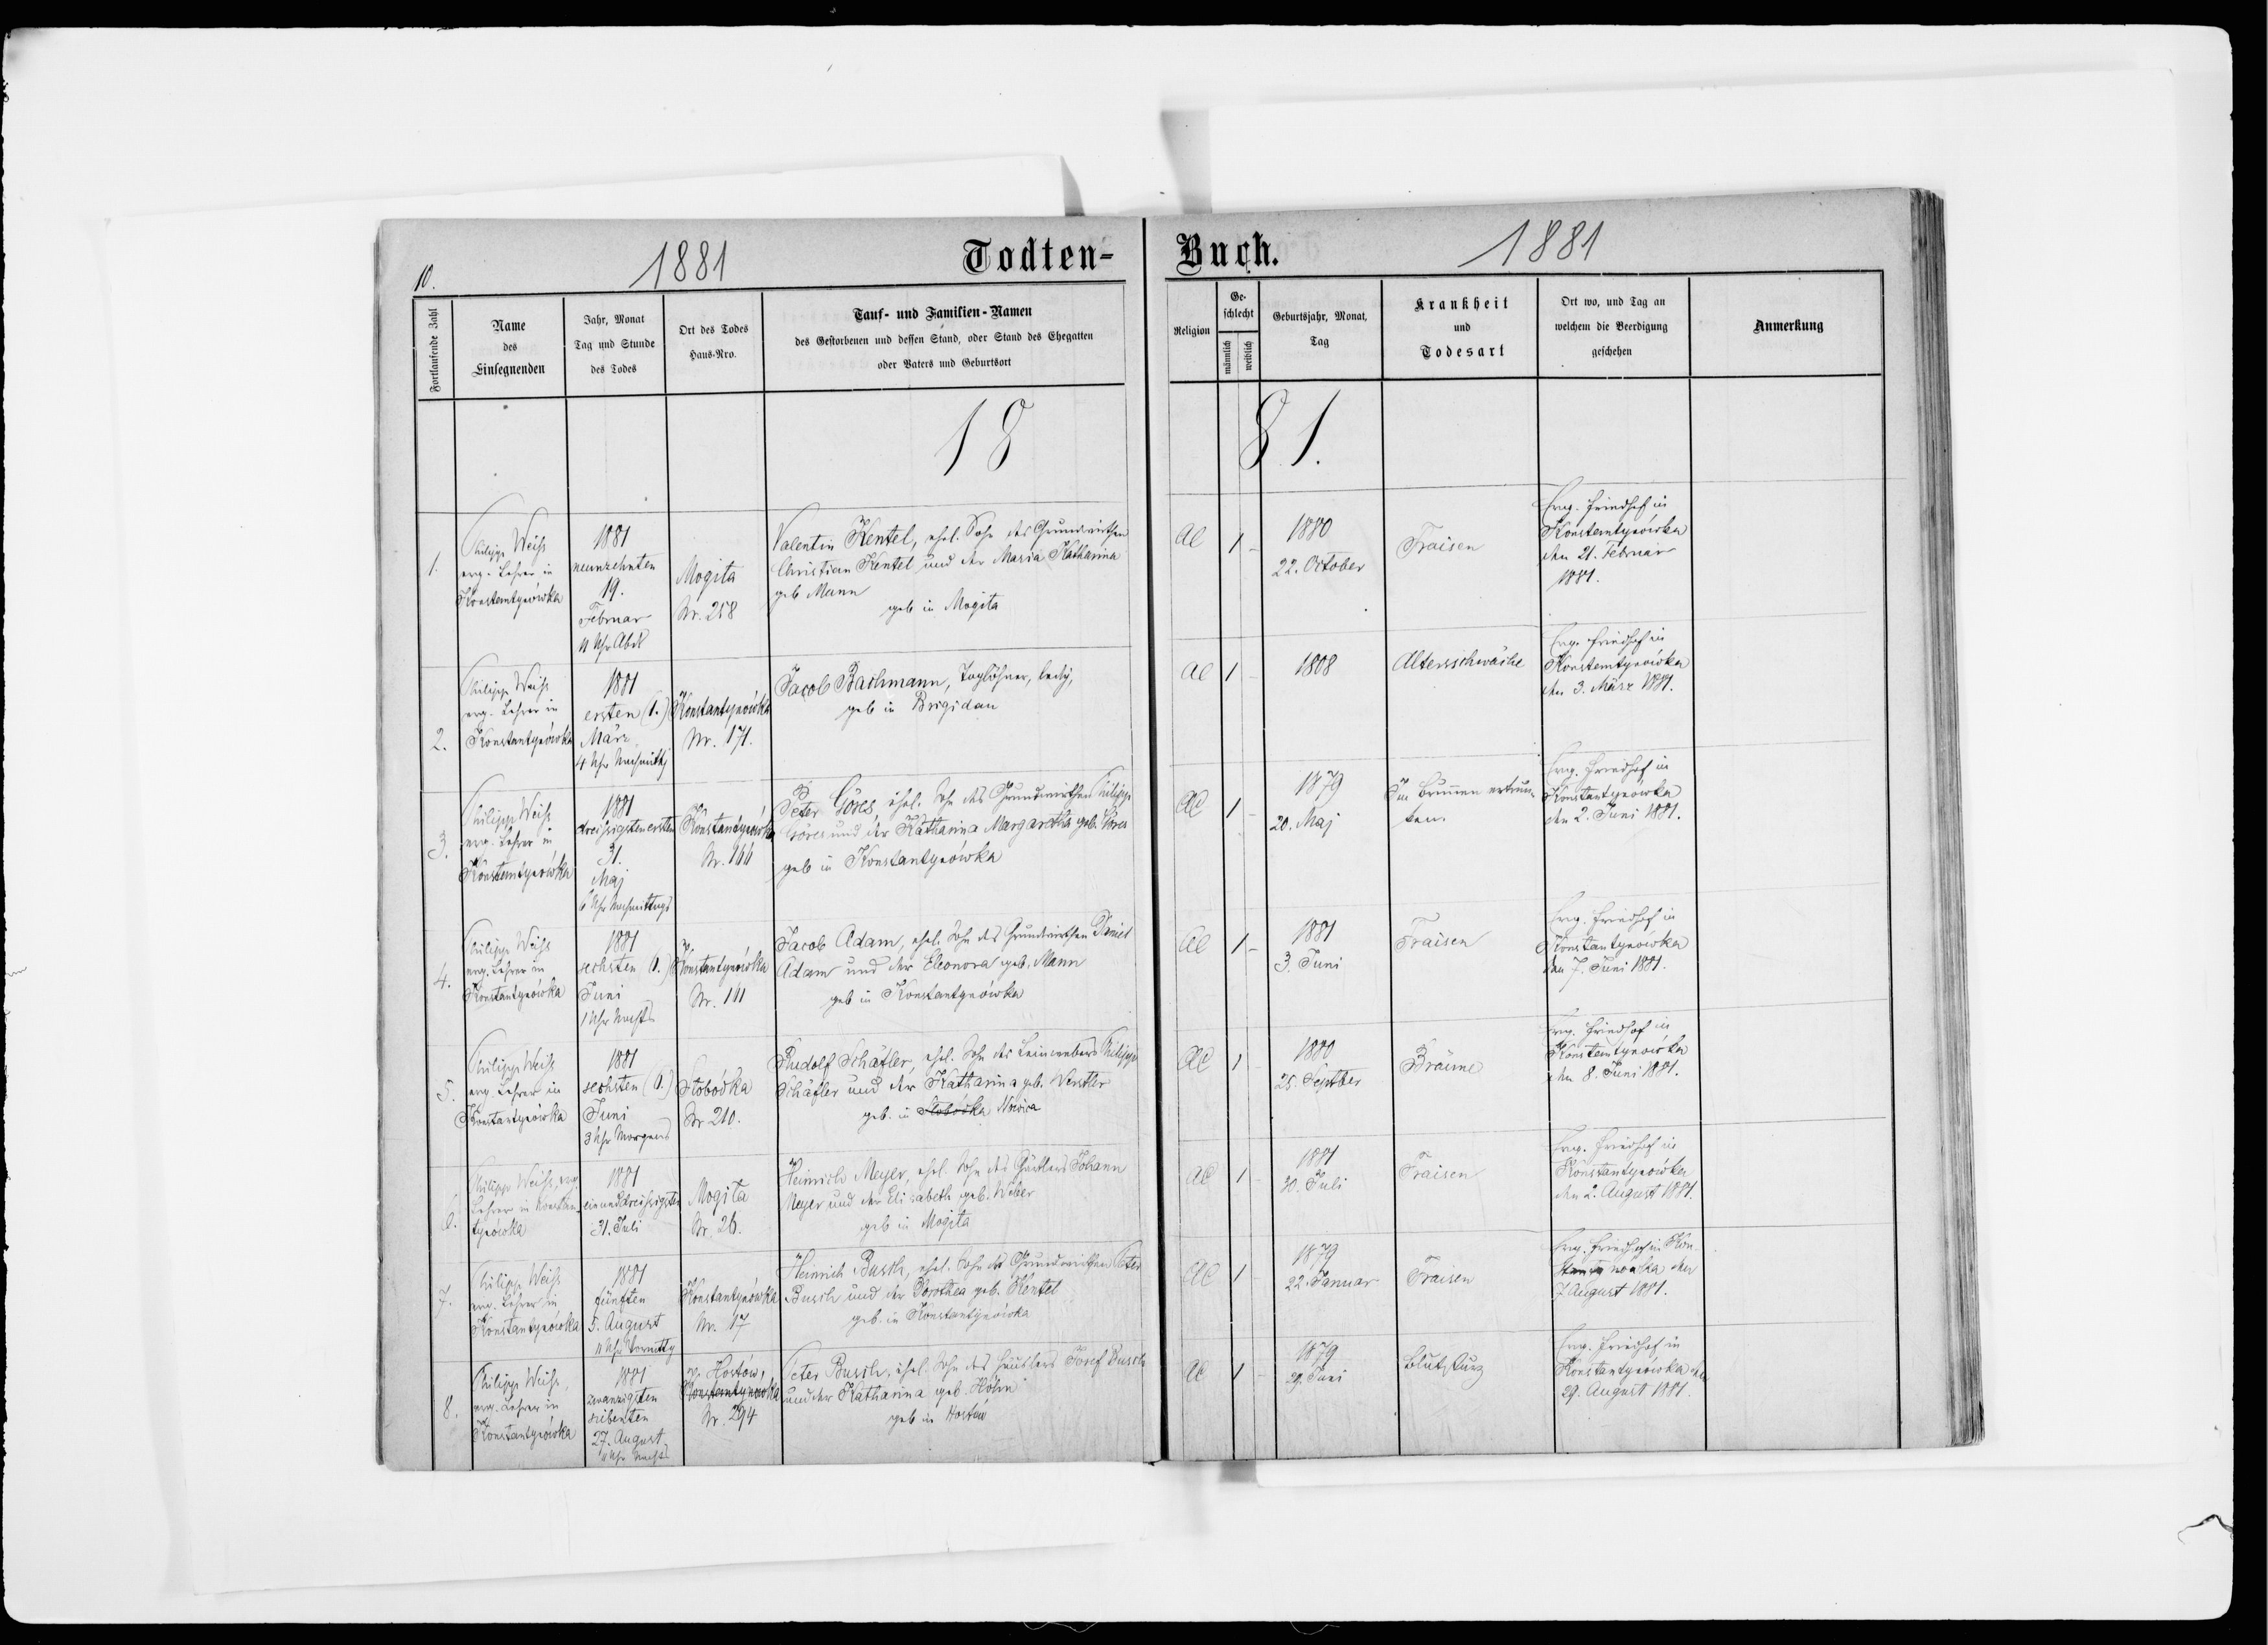 10.
1881
Todten-
Buch.
1881
Fortlaufende Zahl
Name
des
Einsegnenden
Jahr, Monat
Tag und Stunde
des Todes
Ort des Todes
Haus-Nro.
Tauf- und Familien-Namen
des Gestorbenen und dessen Stand, oder Stand des Ehegatten
oder Vaters und Geburtsort
Religion
Ge-
schlecht
männlich
weiblich
Geburtsjahr, Monat,
Tag
Krankheit
und
Todesart
Ort wo, und Tag an
welchem die Beerdigung
geschehen
Anmerkung
18
81.
1.
Philipp Weiß
evg. Lehrer in
Konstantynówka
1881
neunzehnten
19.
Februar
11 Uhr Abds
Mogila
Nr. 258
Valentin Kentel, ehel. Sohn des Grundwirthen
Christian Kentel und der Maria Katharina
geb Mann
geb in Mogila
AC
1
-
1880
22. October
Fraisen
Evg. Friedhof in
Konstantynówka
den 21. Februar
1881.
2.
Philipp Weiß
evg. Lehrer in
Konstantynówka
1881
ersten (1.)
März
4 Uhr Nachmittg
Konstantynówka
Nr. 171.
Jacob Bachmann, Taglöhner, ledig,
geb in Brigidau
AC
1
-
1808
Altersschwäche
Evg. Friedhof in
Konstantynówka
den 3. März 1881.
3.
Philipp Weiß
evg. Lehrer in
Konstantynówka
1881
dreißigsten ersten
31.
Maj
6 Uhr Nachmittags
Konstantynówka
Nr. 166
Peter Göres, ehel. Sohn des Grundwirthen Philipp
Göres und der Katharina Margaretha geb. Göres
geb in Konstantynówka
AC
1
-
1879
20. Maj
Im Brunnen ertrun-
ken.
Evg. Friedhof in
Konstantynówka
den 2. Juni 1881.
4.
Philipp Weiß
evg. Lehrer in
Konstantynówka
1881
sechsten (6.)
Juni
1 Uhr Nachts
Konstantynówka
Nr. 161
Jacob Adam, ehel. Sohn des Grundwirthen Daniel
Adam und der Eleonora geb. Mann
geb in Konstantynówka
AC
1
-
1881
3. Juni
Fraisen
Evg. Friedhof in
Konstantynówka
den 7. Juni 1881.
5.
Philipp Weiß
evg. Lehrer in
Konstantynówka
1881
sechsten (6.)
Juni
3 Uhr Morgens
Slobódka
Nr 210.
Rudolf Schäfler, ehel. Sohn des Leinwebers Philipp
Schäfler und der Katharina geb. Werstler
geb. in Slobódka
AC
1
1880
25. Septber
Bräune
Evg. Friedhof in
Konstantynówka
den 8. Juni 1881.
6.
Philipp Weiß, evg.
Lehrer in Konstan-
tynówka
1881
einunddreißigsten
31. Juli
Mogila
Nr. 26.
Heinrich Meyer, ehel. Sohn des Gärtlers Johann
Meyer und der Elisabeth geb. Weber
geb in Mogila
AC
1
-
1881
20. Juli
Fraisen
Evg. Friedhof in
Konstantynówka
den 2. August 1881.
7.
Philipp Weiß
evg. Lehrer in
Konstantynówka
1881
fünften
5. August
11 Uhr Vormittg
Konstantynówka
Nr. 17
Heinrich Busch, ehel. Sohn des Grundwirthen Peter
Busch und der Dorothea geb. Kentel
geb. in Konstantynówka
AC
1
-
1879
22. Januar
Fraisen
Evg. Friedhof in Kon-
stantynówka den
7 August 1881.
8.
Philipp Weiß,
evg. Lehrer in
Konstantynówka
1881
zwanzigsten
siebenten
27. August
11 Uhr Nachts
Hostów,
Konstantynówka
Nr. 294
Peter Busch, ehel. Sohn des Häuslers Josef Busch
und der Katharina geb. Höhn
geb in Hostów
AC
1
-
1879
29. Juni
Blutsturz
Evg. Friedhof in
Konstantynówka den
29. August 1881.